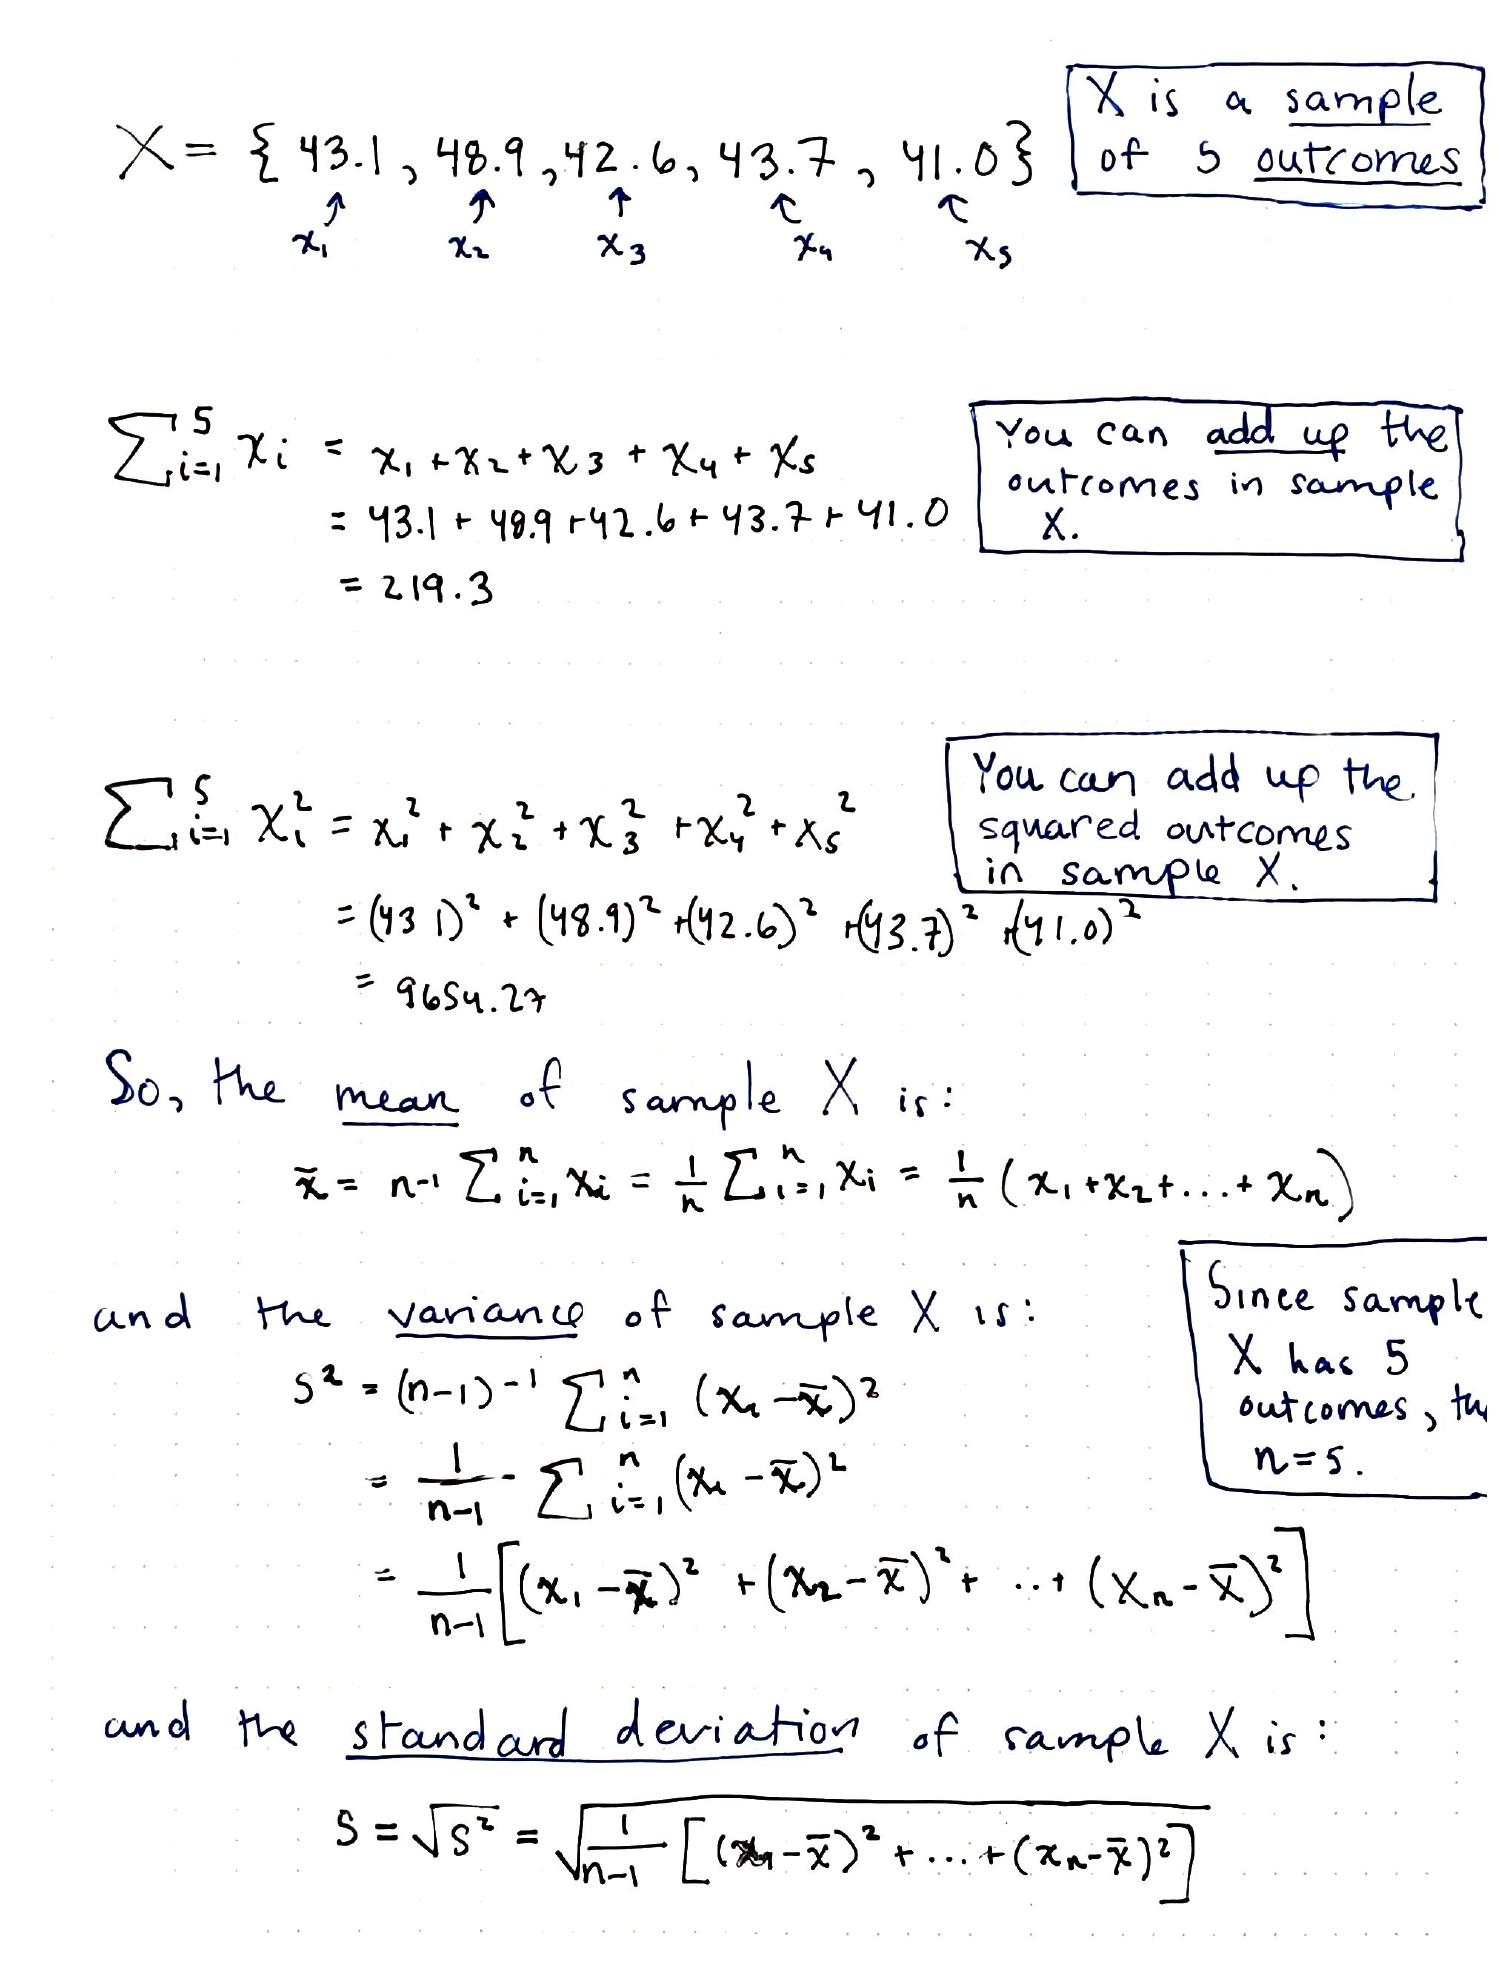 X = { 43.1, 48.9, 42.6, 43.7, 41.0}
x₁ x₂ x₃ x₄ x₅
X is a sample
of 5 outcomes
∑ᵢ₌₁⁵ xᵢ = x₁ + x₂ + x₃ + x₄ + x₅
= 43.1 + 48.9 + 42.6 + 43.7 + 41.0
= 219.3
You can add up the
outcomes in sample
X.
∑ᵢ₌₁⁵ xᵢ² = x₁² + x₂² + x₃² + x₄² + x₅²
= (43 1)² + (48.9)² + (42.6)² + (43.7)² + (41.0)²
= 9654.27
You can add up the
squared outcomes
in sample X.
So, the mean of sample X is:
x̄ = n-1 ∑ᵢ₌₁ⁿ xᵢ = 1/n ∑ᵢ₌₁ⁿ xᵢ = 1/n (x₁ + x₂ + ... + xₙ)
and the variance of sample X is:
s² = (n-1)-1 ∑ᵢ₌₁ⁿ (xᵢ - x̄)²
= 1/(n-1) ∑ᵢ₌₁ⁿ (xᵢ - x̄)²
= 1/(n-1) [(x₁ - x̄)² + (x₂ - x̄)² + ..+ (xₙ - x̄)²]
Since sample
X has 5
outcomes,
n=5.
and the standard deviation of sample X is:
s = √s² = √(1/(n-1) [(x₁ - x̄)² + ... + (xₙ - x̄)²])